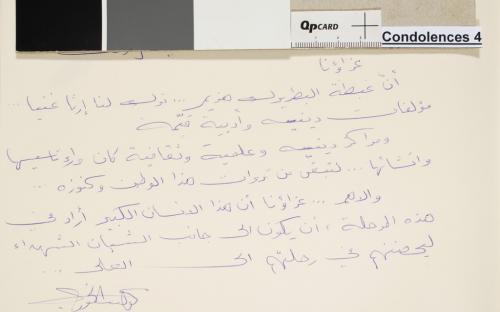 QPCARD
Condolences 4
عزاؤنا
أنّ غبطة البطريرك هزيم ... ترك لنا إرثا غنيا ...
مؤلفات دينية وأدبية قيّمة
ومراكز دينية وعلمية وثقافية كان وراء تأسيسها
وانشائها ... لتبقى من ثروات هذا الوطن وكنوزه ...
والأهم ... عزاؤنا أن هذا الانسان الكبير أراد في
هذه المرحلة ، أن يكون الى جانب الشبّان الشهداء
ليحضنهم في رحلتهم الى العلى ...